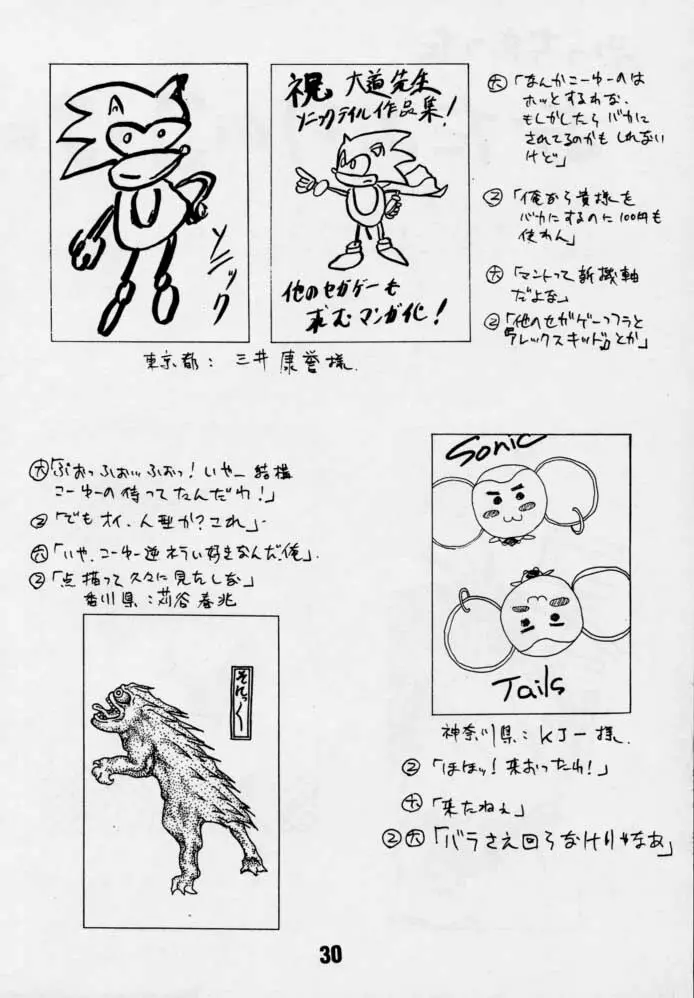 ソニック
祝 大道先生
ソニックテイル作品集!
他のセガゲーも
求むマンガ化!
東京都: 三井康誉様.
㊅「なんかこーゆーのは
ホッとするわな.
もしかしたらバカに
されてるのかもしれない
けど」
②「俺が貴様を
バカにするのに100円も
使わん」
㊅「マントって新機軸
だよな」
②「他のセガゲーっつうと
『アレックスキッド』とか」
「ぶおっふおぉっふおっ!いやー結構
こーゆーの待ってたんだわ!」
②「でもオイ、人型か?これ」
「いや、こーゆー逆ネライ好きなんだ俺」.
②「点描って久々に見たしな」
香川県:苅谷春兆
それっく
Sonic
Tails
神奈川県: KJー様.
②「ほほッ!来おったわ!」
「来たねぇ」
②「バラさえ回らなけりゃなあ」
30